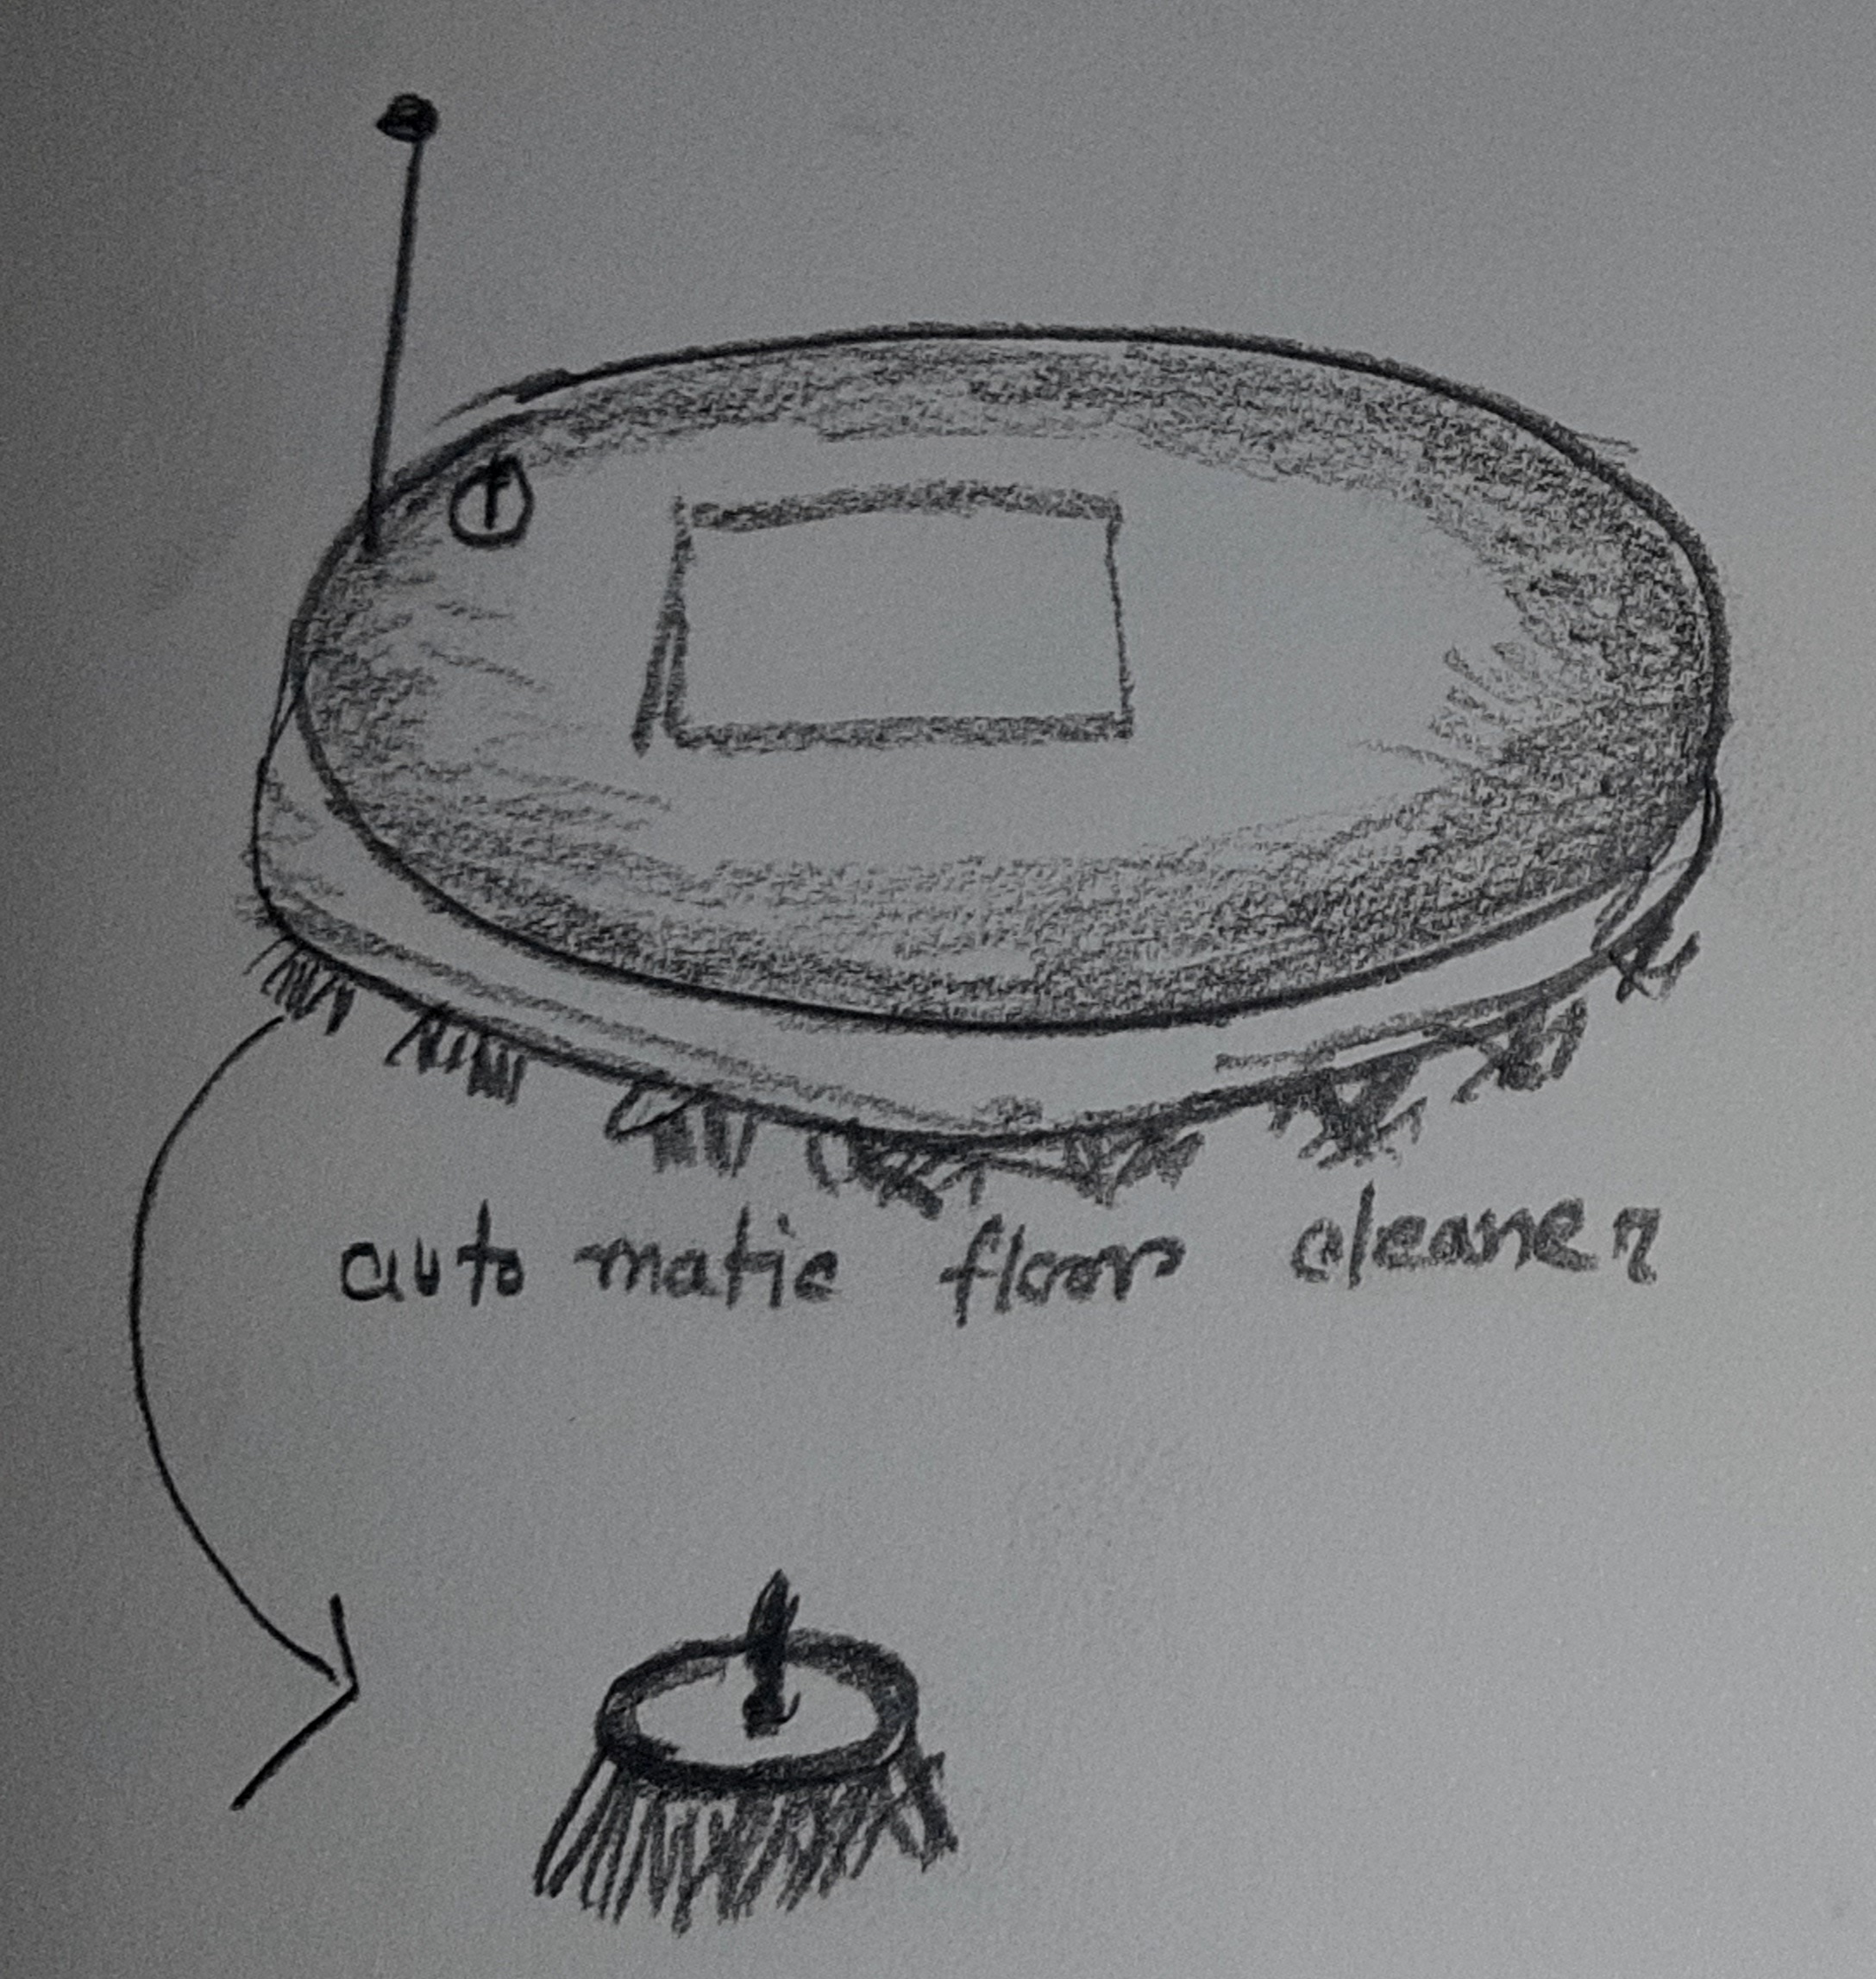 auto matic floor cleaner